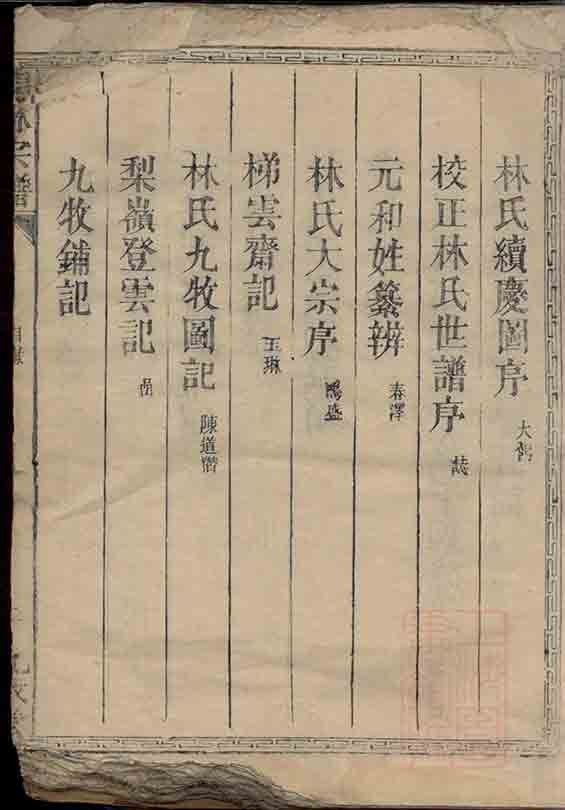 林氏續慶圖序
校正林氏世譜序 誌
元和姓纂辨 春澤
林氏大宗序 鴻盛
梯雲齋記 王琳
林氏九牧圖記 陳道潛
梨嶺登雲記
九牧鋪記
林宗譜
目錄
九牧